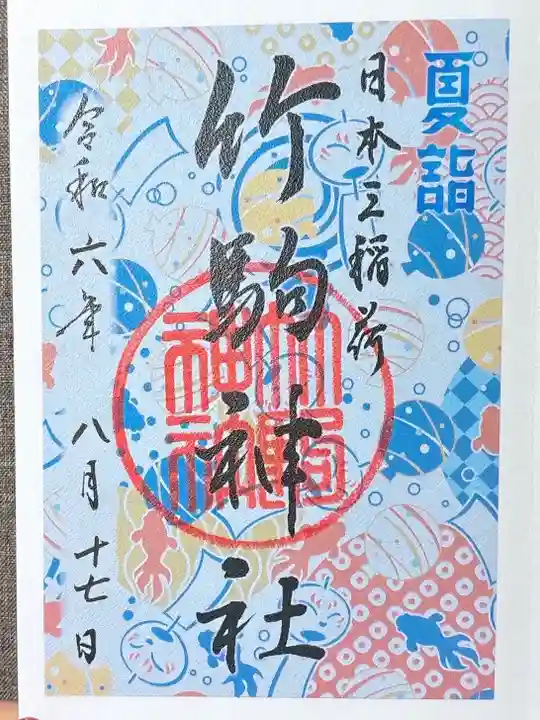 夏詣
日本三稲荷
竹駒神社
竹駒
神社
令和六年 八月十七日